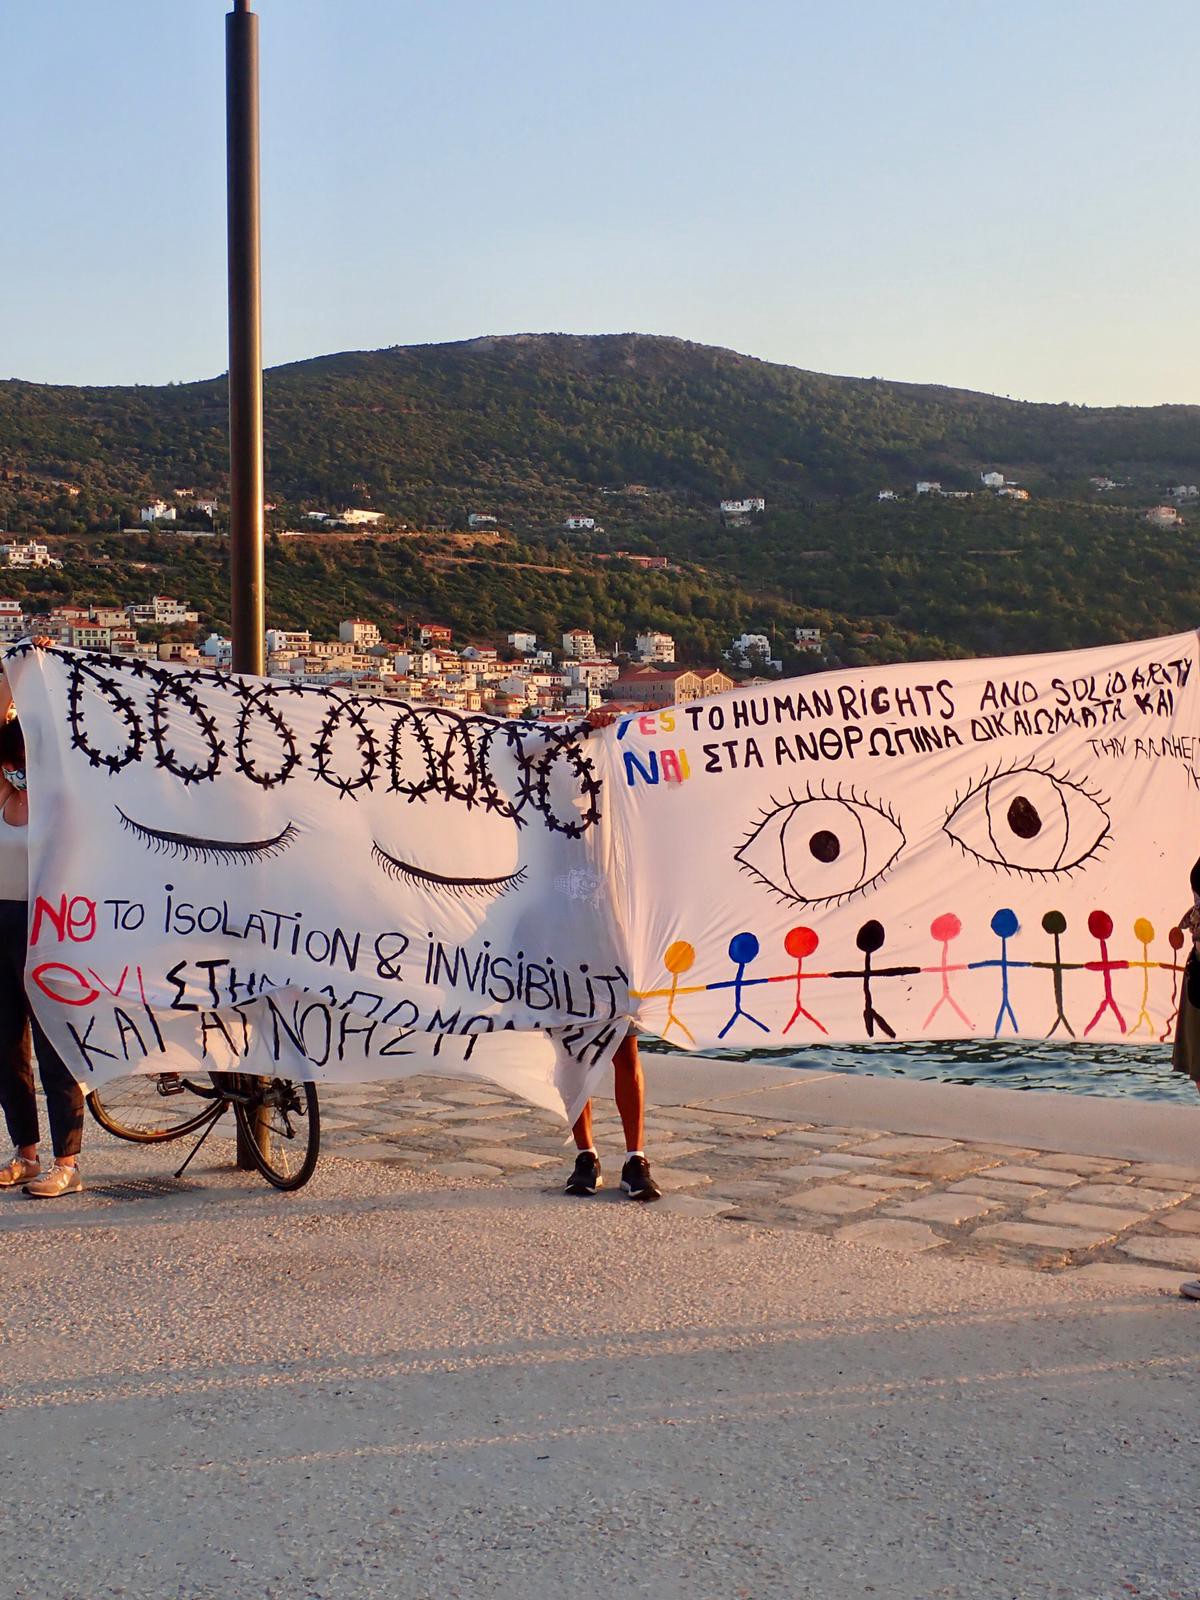 NO TO iSOLATiON & iNViSiBiLiTY
OXI ΣΤΗΝ
ΚΑΙ
YES TO HUMAN RiGHTS AND SOLiDARiTY
ΝΑΙ ΣΤΑ ΑΝΘΡΩΠΙΝΑ ΔΙΚΑΙΩΜΑΤΑ ΚΑΙ
ΤΗΝ